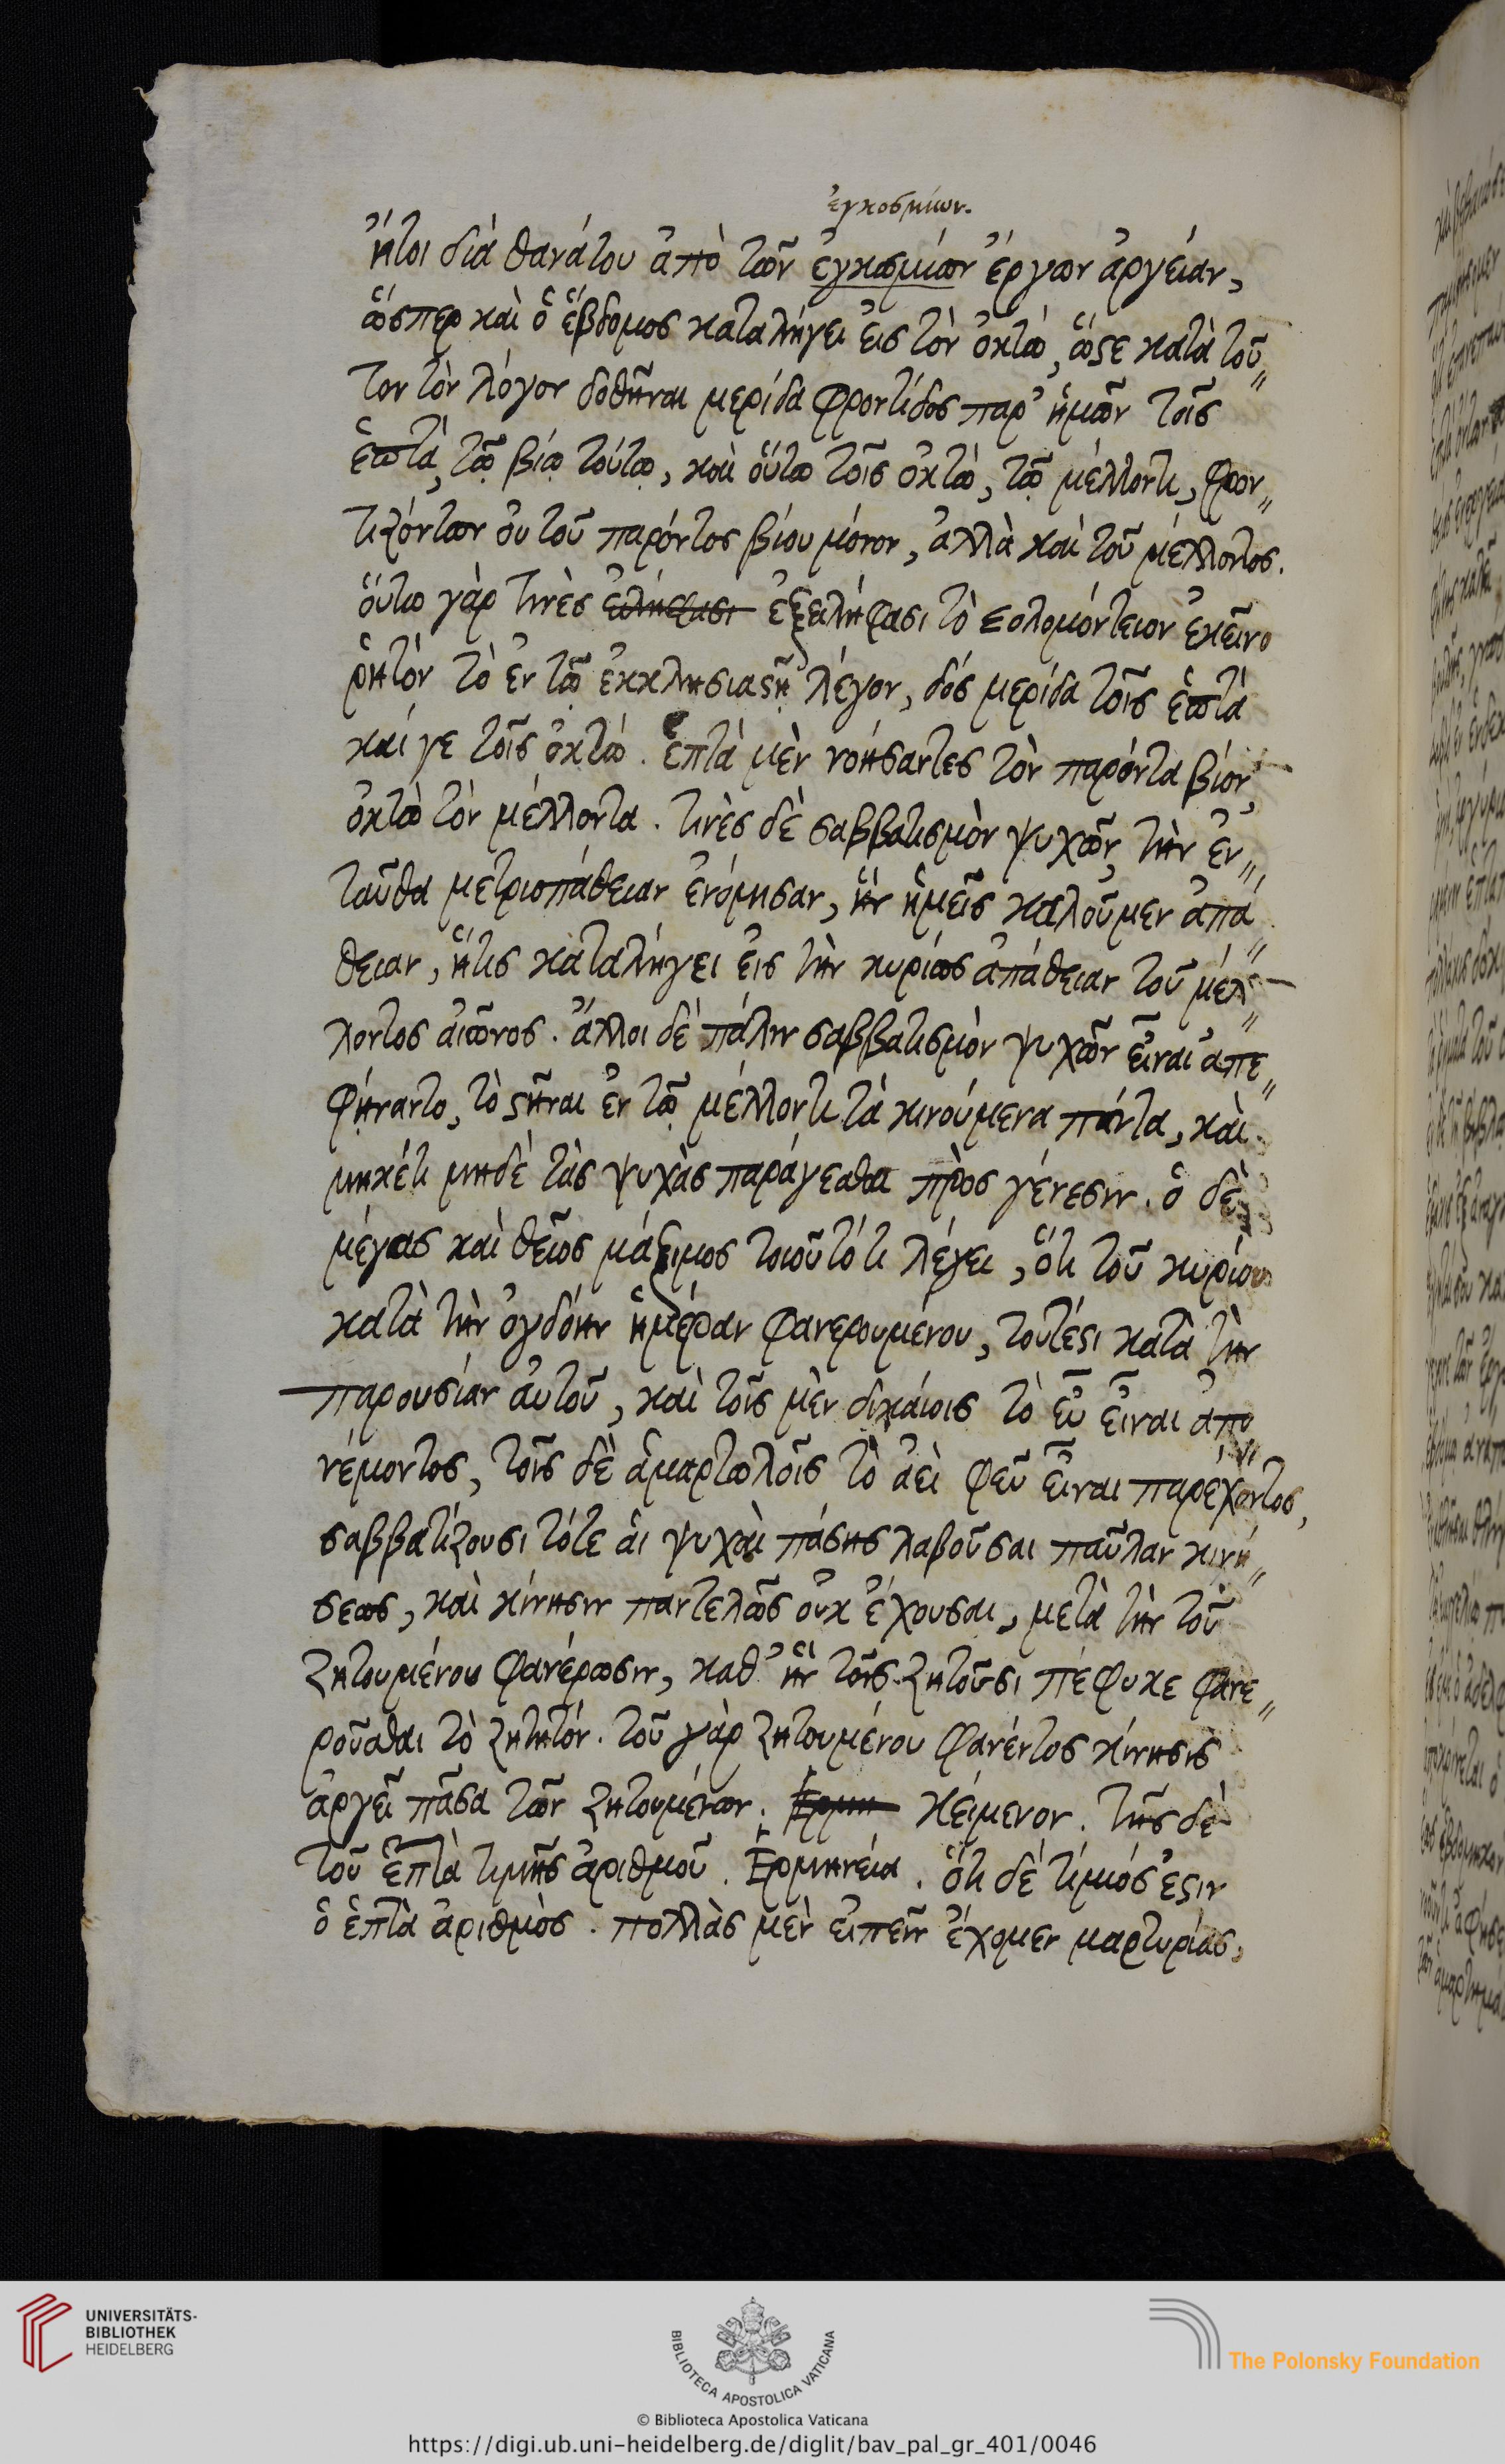 ἐγκοσμίων.
ἤτοι διὰ θανάτου ἀπὸ τῶν ἐγκωμίων ἔργων ἀργείαν,
ὥσπερ καὶ ὁ ἕβδομος καταλήγει εἰς τὸν ὀκτώ, ὥστε κατὰ τοῦ〃
τον τὸν λόγον δοθῆναι μερίδα φροντίδος παρ' ἡμῶν τοῖς
ἑπτὰ, τῷ βίῳ τούτῳ, καὶ οὕτω τοῖς ὀκτώ, τῷ μέλλοντι, φρον〃
τιζόντων οὐ τοῦ παρόντος βίου μόνον, ἀλλὰ καὶ τοῦ μέλλοντος.
οὕτω γὰρ τινὲς εἰλήφασι ἐξειλήφασι τὸ Σολομόντειον ἐκεῖνο
ῥητόν τὸ ἐν τῷ ἐκκλησιαστῇ λέγον, δός μερίδα τοῖς ἑπτὰ
καί γε τοῖς ὀκτώ. ἑπτὰ μὲν νοήσαντες τὸν παρόντα βίον,
ὀκτὼ τὸν μέλλοντα. τινὲς δὲ σαββατισμὸν ψυχῶν, τὴν ἐν〃
ταῦθα μετριοπάθειαν ἐνόμησαν, ἣν ἡμεῖς καλοῦμεν ἀπά〃
θειαν, ἥτις καταλήγει εἰς τὴν κυρίως ἀπάθειαν τοῦ μέλ〃
λοντος αἰῶνος. ἄλλοι δὲ πάλιν σαββατισμὸν ψυχῶν εἶναι ἀπε〃
φήναντο, τὸ στῆναι ἐν τῷ μέλλοντι τὰ κινούμενα πάντα, καὶ
μηκέτι μηδὲ τὰς ψυχὰς παράγεσθαι πρὸς γένεσιν. ὁ δὲ
μέγας καὶ θεῖος μάξιμος τοιοῦτό τι λέγει, ὅτι τοῦ κυρίου
κατὰ τὴν ὀγδόην ἡμέραν φανερουμένου, τουτέστι κατὰ τὴν
παρουσίαν αὐτοῦ, καὶ τοῖς μὲν δικαίοις τὸ εὖ εἶναι ἀπο〃
νέμοντος, τοῖς δὲ ἁμαρτωλοῖς τὸ ἀεὶ φεῦ εἶναι παρέχοντος,
σαββατίζουσι τότε αἱ ψυχαὶ πάσης λαβοῦσαι παῦλαν κινή〃
σεως, καὶ κίνησιν παντελῶς οὐκ ἔχουσαι, μετὰ τὴν τοῦ
ζητουμένου φανέρωσιν, καθ' ἣν τοῖς ζητοῦσι πέφυκε φανε〃
ροῦσθαι τὸ ζητητόν. τοῦ γὰρ ζητουμένου φανέντος κίνησις
ἀργεῖ πᾶσα τῶν ζητουμένων. Ἑρμη κείμενον. τῆς δὲ
τοῦ ἑπτὰ τιμῆς ἀριθμοῦ. Ἑρμηνεία. ὅτι δὲ τίμιός ἐστιν
ὁ ἑπτὰ ἀριθμὸς. πολλὰς μὲν εἰπεῖν ἔχομεν μαρτυρίας,
UNIVERSITÄTS-
BIBLIOTHEK
HEIDELBERG
BIBLIOTECA APOSTOLICA VATICANA
The Polonsky Foundation
© Biblioteca Apostolica Vaticana
https://digi.ub.uni-heidelberg.de/diglit/bav_pal_gr_401/0046